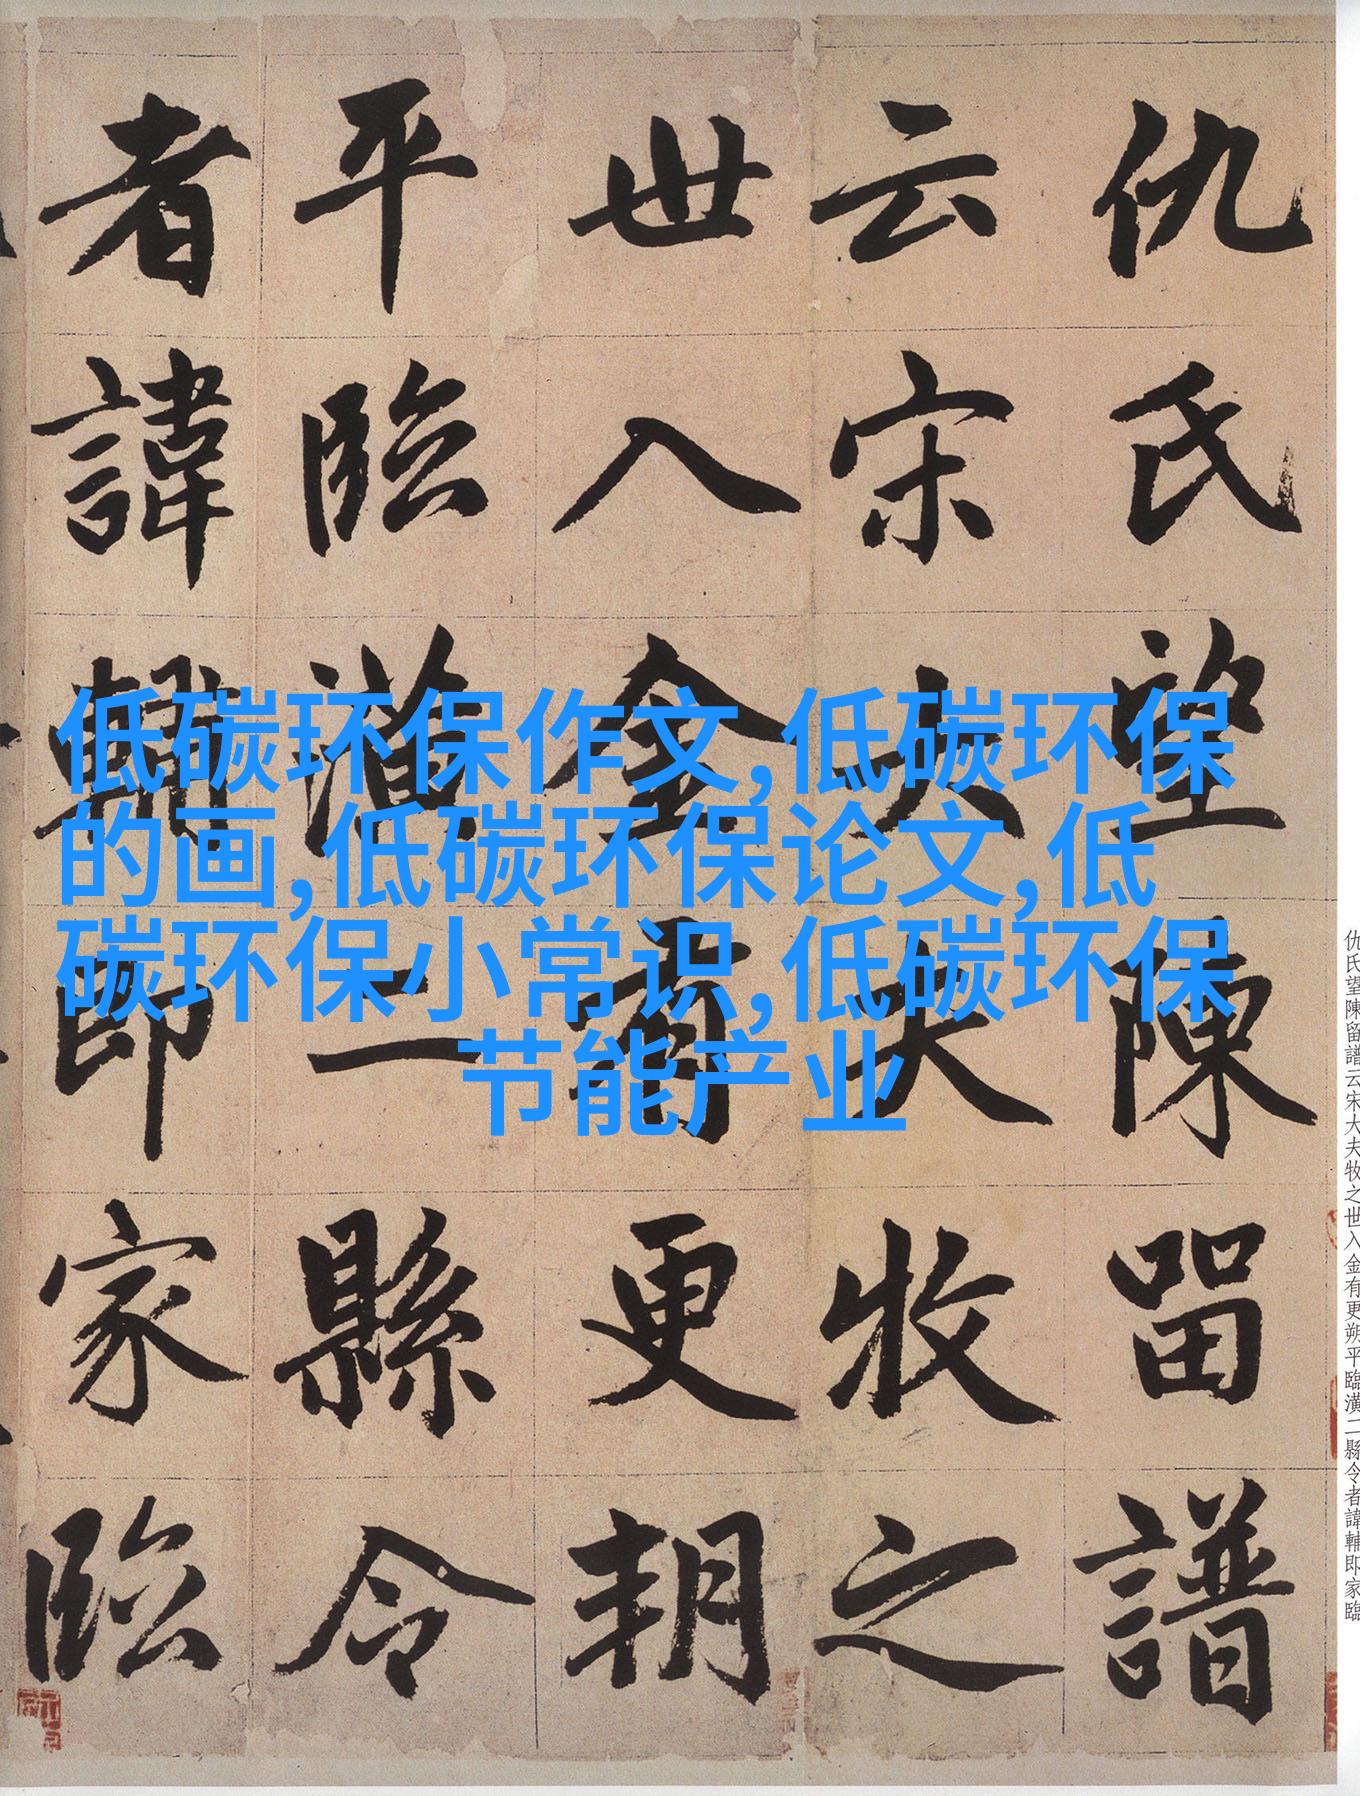 仇氏望陳留譜
云宋大夫牧之
世入金有更朔
平臨潢二縣令
者諱輔即家臨
低碳环保作文,低碳环保
的画,低碳环保论文,低
碳环保小常识,低碳环保
节能产业
仇氏望陳留譜云宋大夫牧之世入金有更朔平臨潢二縣令者諱輔即家臨